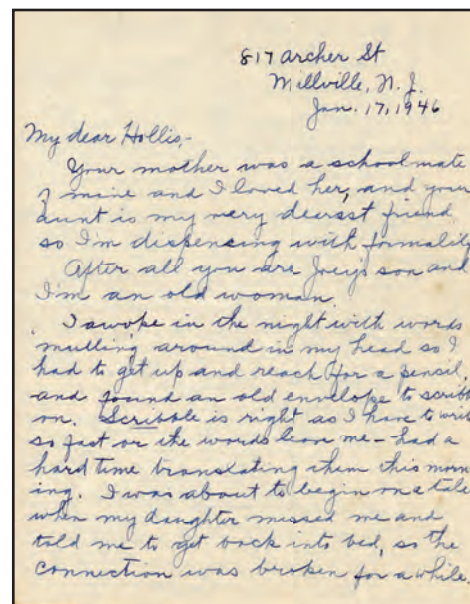 817 Archer St
Millville, N.J.
Jan. 17, 1946
My dear Hollis,-
Your mother was a schoolmate
of mine and I loved her, and your
aunt is my very dearest friend
so I'm dispensing with formality.
After all you are Joey's son and
I'm an old woman.
I awoke in the night with words
mulling around in my head so I
had to get up and reach for a pencil,
and found an old envelope to scribble
on. Scribble is right as I have to write
so fast or the words leave me - had a
hard time translating them this morn-
ing. I was about to begin on a
when my daughter missed me and
told me to get back into bed, so the
connection was broken for a while.